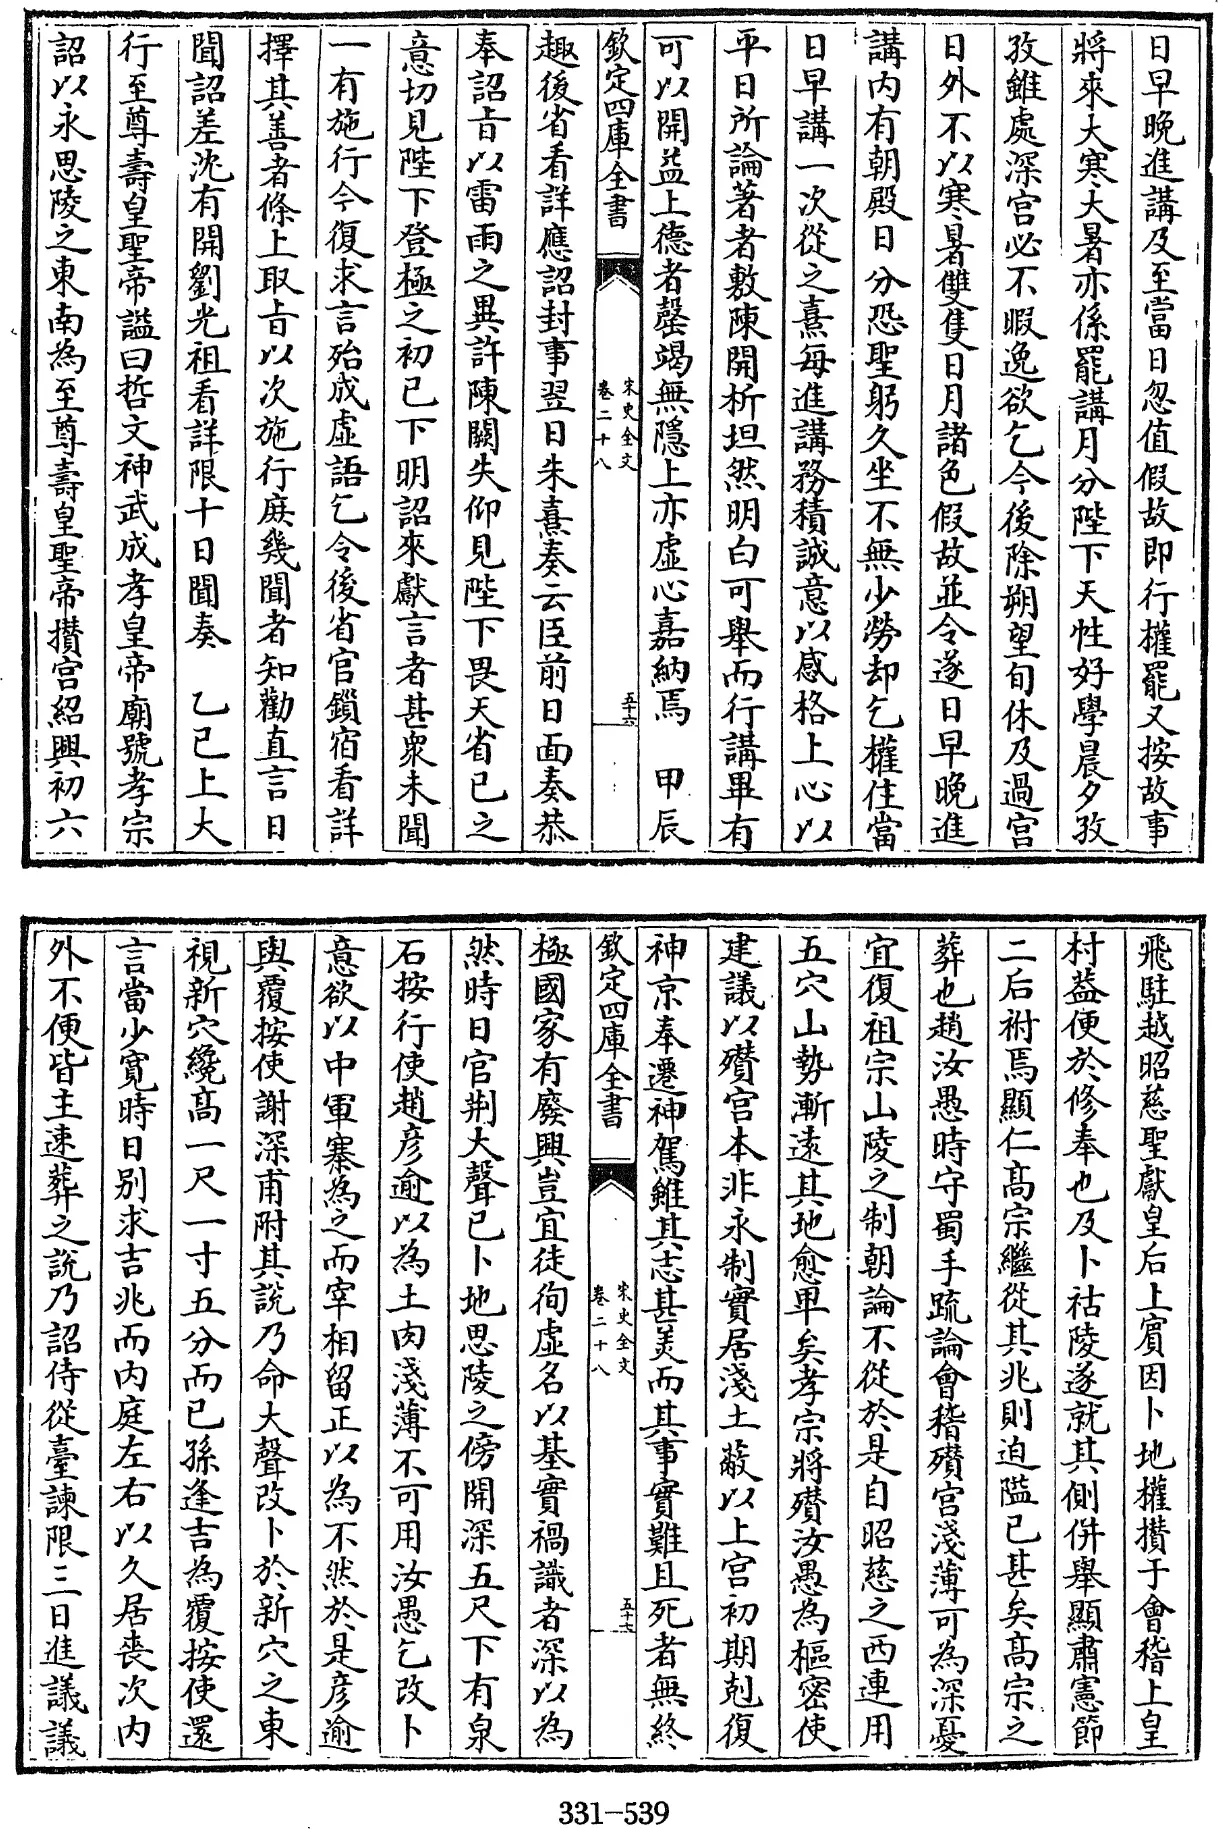 日早晚進講及至當日忽值假故即行權罷又按故事
將來大寒大暑亦係罷講月分陛下天性好學晨夕孜
孜雖處深宮必不暇逸欲乞今後除朔望旬休及過宮
日外不以寒暑雙隻日月諸色假故並令逐日早晚進
講内有朝殿日分恐聖躬久坐不無少勞却乞權住當
日早講一次從之熹每進講務積誠意以感格上心以
平日所論著者敷陳開析坦然明白可舉而行講畢有
可以開益上德者罄竭無隱上亦虛心嘉納焉　甲辰
欽定四庫全書
宋史全文
卷二十八
五十六
趣後省看詳應詔封事翌日朱熹奏云臣前日面奏恭
奉詔旨以雷雨之異許陳闕失仰見陛下畏天省已之
意切見陛下登極之初已下明詔來獻言者甚衆未聞
一有施行今復求言殆成虛語乞令後省官鎖宿看詳
擇其善者條上取旨以次施行庶幾聞者知勸直言日
聞詔差沈有開劉光祖看詳限十日聞奏　乙已上大
行至尊壽皇聖帝諡曰哲文神武成孝皇帝廟號孝宗
詔以永思陵之東南為至尊壽皇聖帝攢宮紹興初六
飛駐越昭慈聖獻皇后上賓因卜地權攢于會稽上皇
村蓋便於修奉也及卜祜陵遂就其側併舉顯肅憲節
二后祔焉顯仁高宗繼從其兆則迫隘已甚矣高宗之
葬也趙汝愚時守蜀手疏論會稽殯宮淺薄可為深憂
宜復祖宗山陵之制朝論不從於是自昭慈之西連用
五穴山勢漸遠其地愈卑矣孝宗將殯汝愚為樞密使
建議以殯宮本非永制實居淺土蔽以上宮初期剋復
神京奉遷神駕雖其志甚美而其事實難且死者無終
欽定四庫全書
宋史全文
卷二十八
五十七
極國家有廢興豈宜徒徇虛名以基實禍識者深以為
然時日官荆大聲已卜地思陵之傍開深五尺下有泉
石按行使趙彦逾以為土肉淺薄不可用汝愚乞改卜
意欲以中軍寨為之而宰相留正以為不然於是彦逾
與覆按使謝深甫附其說乃命大聲改卜於新穴之東
視新穴纔高一尺一寸五分而已孫逢吉為覆按使還
言當少寛時日别求吉兆而内庭左右以久居喪次内
外不便皆主速葬之說乃詔侍從臺諫限三日進議議
331-539